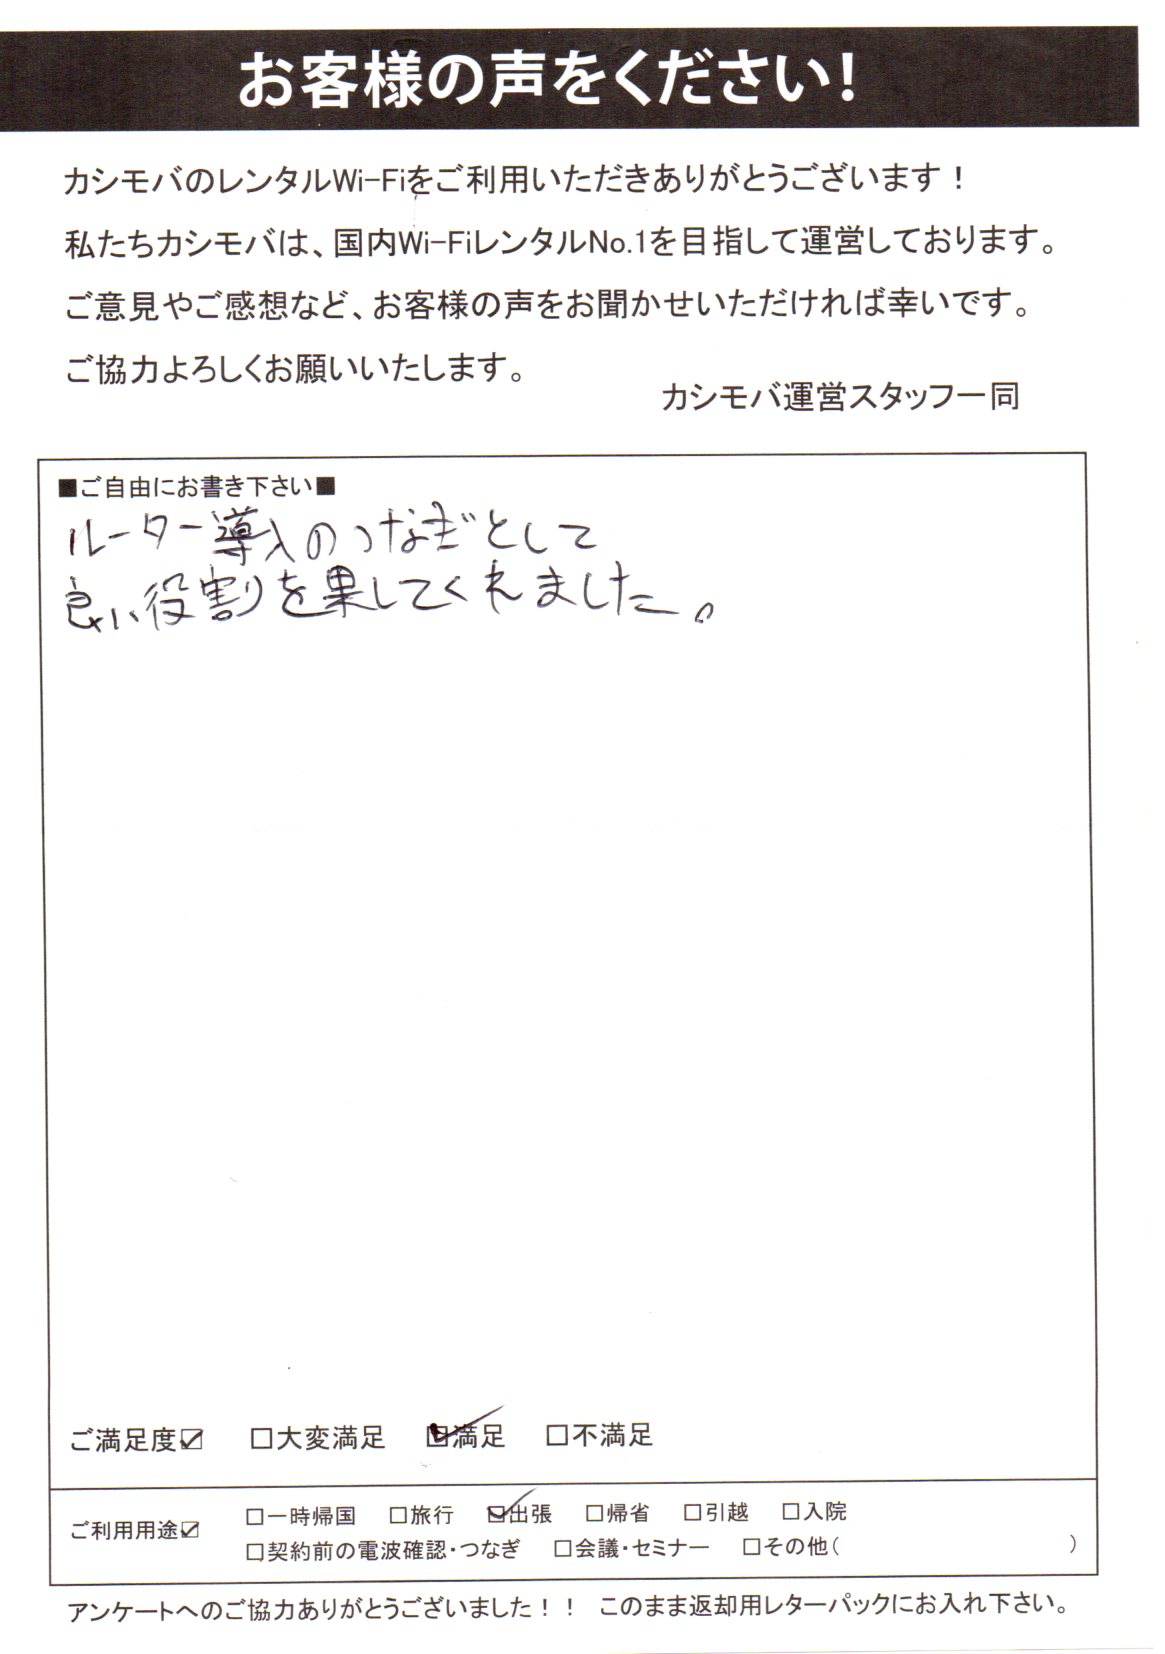 お客様の声をください!
カシモバのレンタルWi-Fiをご利用いただきありがとうございます！
私たちカシモバは、国内Wi-FiレンタルNo.1を目指して運営しております。
ご意見やご感想など、お客様の声をお聞かせいただければ幸いです。
ご協力よろしくお願いいたします。
カシモバ運営スタッフ一同
■ご自由にお書き下さい■
ルーター導入のつなぎとして
良い役割を果してくれました。
ご満足度☑ □大変満足 ☑満足 □不満足
ご利用用途☑ □一時帰国 □旅行 ☑出張 □帰省 □引越 □入院
□契約前の電波確認・つなぎ □会議・セミナー □その他( )
アンケートへのご協力ありがとうございました！！ このまま返却用レターパックにお入れ下さい。